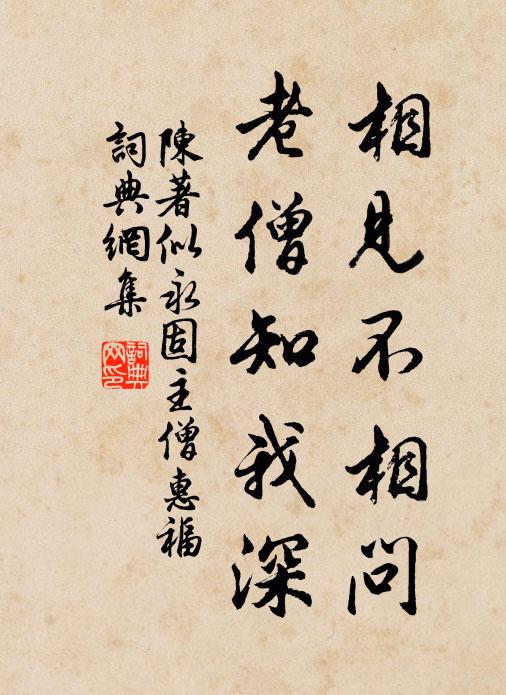 相見不相問
老僧知我深
陳著似永固主僧惠福
詞典網集
詞典網印